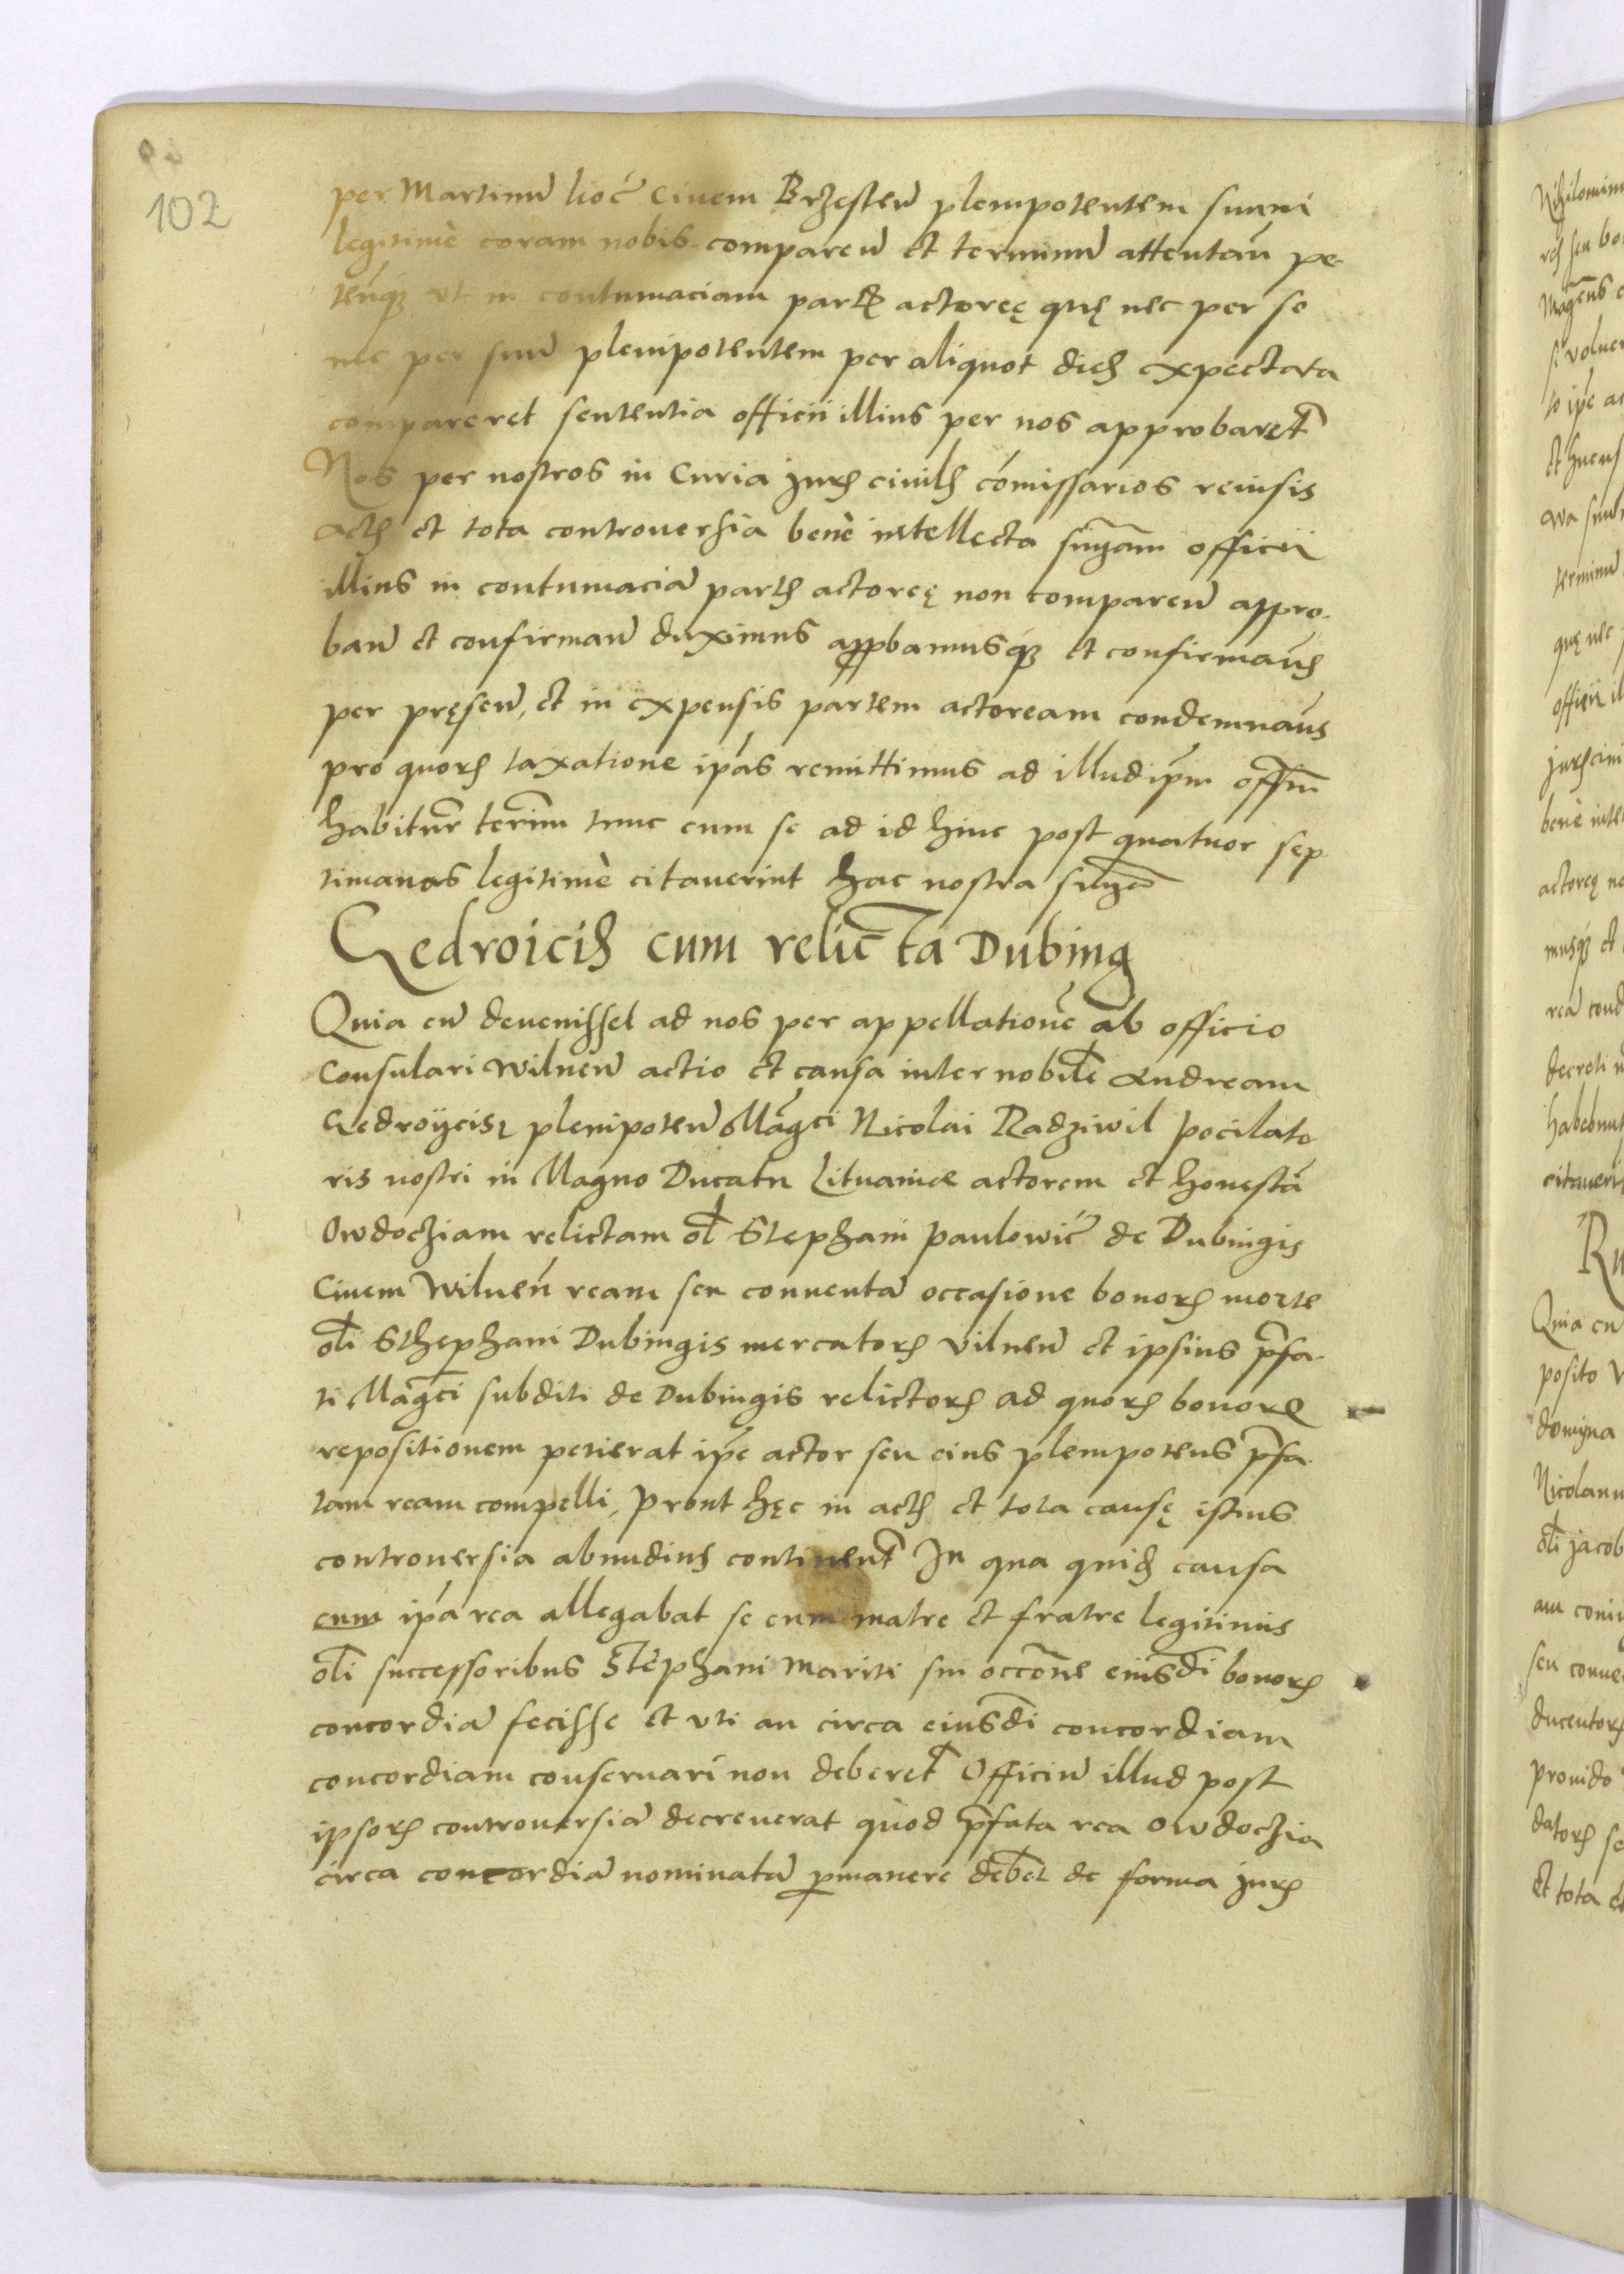 102
per Martinu lioć Ciuem Brzesteń plenipotentem suum
legitimè coram nobis compareń et terminū attentań pe-
teńq; vt in contumaciam partis actoreę quę nec per se
nec per suū plenipotentem per aliquot dies expectata
compareret sententia officii illius per nos approbaret
Nos per nostros in Curia Juris ciuilis cōmissarios reuisis
actis et tota controuersia benè intellecta snīam officii
illius in contumaciā partis actoreę non compareń appro-
bań et confirmań duximus appbamusq; et confirmaūs
per pręseń, et in expensis partem actoream condemnaūs
pro quorū taxatione ipās remittimus ad illud ipm offm
habitur termin tunc cum se ad id hinc post quatuor sep
timanas legitimè citauerint hac nostra snīa
Gedroicis cum relicta Dubing
Quia cū deuenisset ad nos per appellationē ab officio
Consulari Wilneń actio et causa inter nobilē Andream
Gedroycis plenipoteń Magci Nicolai Radziwil pocilato
ris nostri in Magno Ducatu Lituaniæ actorem et honestā
Owdochiam relictam ol Stephani Paulowić de Dubingis
Ciuem Wilneń ream seu conuentā occasione bonorū morte
oli Sthephani Dubingis mercatoris Vilneń et ipsius pfa-
ti Magci subditi de Dubingis relictorū ad quorū bonorū
repositionem petierat ipē actor seu eius plenipotens pfa-
tam ream compelli, prout hęc in actis et tota causę istius
controuersia abundius continent In qua quid causa
cum ipā rea allegabat se cum matre et fratre legitimis
oli successoribus Stephani mariti sui occōne eiusdi bonorū
concordiā fecisse et vti an circa eiusdi concordiam
concordiam conseruari non deberet Officiū illud post
ipsorū controuersiā decreuerat quòd pfata rea Owdochia
circa concordiā nominatā pmanere debet de forma juris